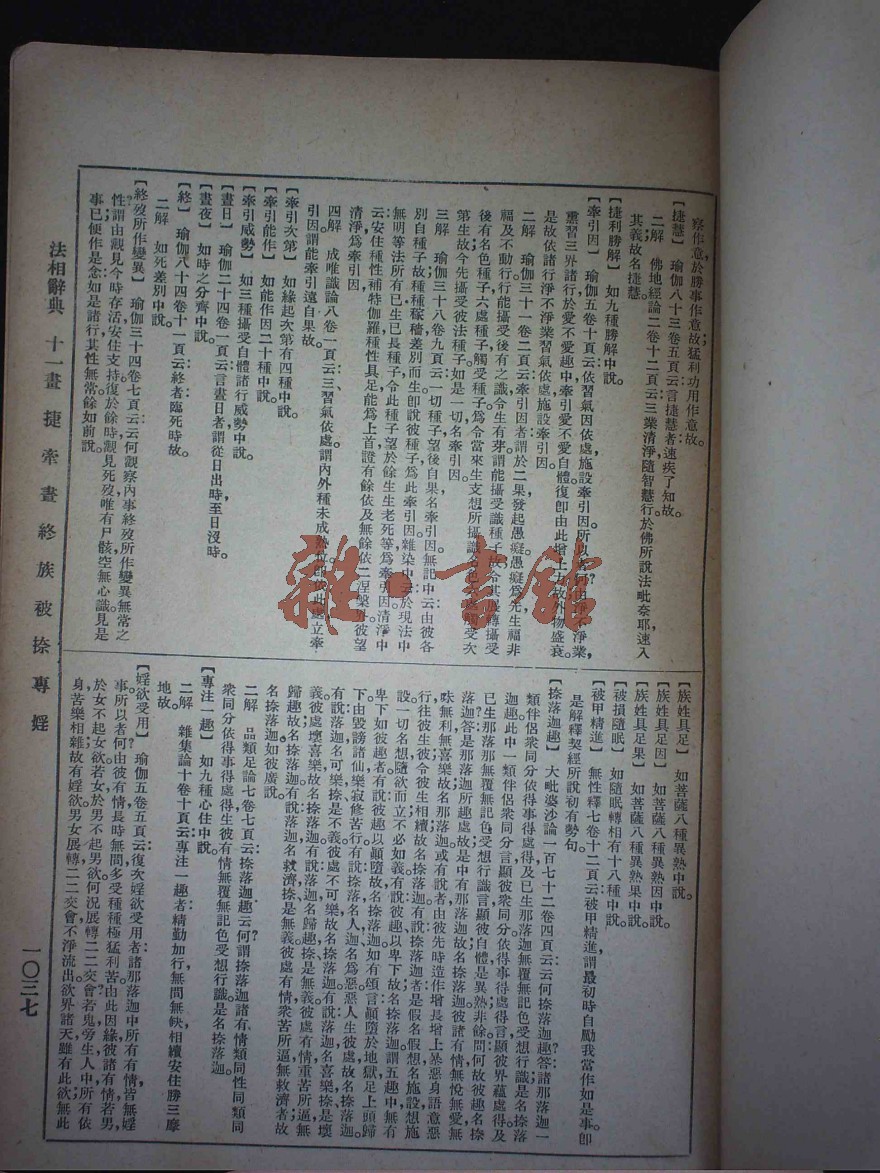 察作意於勝事作意故猛利功用作意故。
【捷慧】 瑜伽八十三卷五頁云：言捷慧者速疾了知故。
二解 佛地經論二卷十二頁云：三業清淨隨智慧行於佛所說法毗奈耶速入
其義故名捷慧。
【捷利勝解】 如九種勝解中說。
【牽引因】 瑜伽五卷十頁云：依習氣因依處施設牽引因。所以者何？由淨不淨業，
熏習三界諸行於愛不愛趣中牽引愛不愛自體。復即由此增上力故外物盛衰。
是故依諸行淨不淨業習氣依處施設牽引因。
二解 瑜伽三十一卷二頁云：牽引因者謂於二果發起愚癡。愚癡為先生福非
福及不動行。行能攝受後有之識令生有芽。謂能攝受識種子故令其展轉攝受
後有名色種子六處種子觸受種子。為令當來生支想所攝識名色六處觸受次
第生故今先攝受彼法種子。如是一切名牽引因。
三解 瑜伽三十八卷九頁云：一切種子望後自果名牽引因。無記中云：由彼各
別自種子故種種稼穡差別而生。即說彼種子為此牽引因。雜染中云：於現法中
無明等法所有已生已長種子令此種子望於餘生生老死等為牽引因。清淨中
云：安住種性補特伽羅種性具足能為上首證有餘依及無餘依二涅槃界彼望
清淨為牽引因。
四解 成唯識論八卷一頁云：三習氣依處謂內外種未成熟位即依此處立牽
引因謂能牽引遠自果故。
【牽引次第】 如緣起次第有四種中說。
【牽引能作】 如能作因二十種中說。
【牽引威勢】 如三種攝受自體諸行威勢中說。
【晝日】 瑜伽二十四卷一頁云：言晝日者謂從日出時至日沒時。
【晝夜】 如時之分齊中說。
【終】 瑜伽八十四卷十一頁云：終者臨死時故。
二解 如死差別中說。
【終歿所作變異】 瑜伽三十四卷七頁云：云何觀察內事終歿所作變異無常之
性？謂由觀見今時存活安住支持復於餘時觀見死歿唯有尸骸空無心識。見是
事已便作是念：如是諸行其性無常。餘如前說。
【族姓具足】 如菩薩八種異熟中說。
【族姓具足因】 如菩薩八種異熟因中說。
【族姓具足果】 如菩薩八種異熟果中說。
【被損隨眠】 如隨眠轉相有十八種中說。
【被甲精進】 無性釋七卷十二頁云：被甲精進謂最初時自勵我當作如是事。即
是解釋契經所說初有勢句。
【捺落迦趣】 大毗婆沙論一百七十二卷四頁云：云何捺落迦趣？答諸那落迦一
類伴侶眾同分依得事得處得及已生那落迦無覆無記色受想行識是名捺落
迦趣。此中一類伴侶眾同分言顯彼眾同分。依得事得處得言顯彼界蘊處得。及
已生那落迦無覆無記色受想行識言顯彼自體是異熟非餘。問何故彼趣名捺
落迦？答是那落迦所趣處故。是中有那落迦故名捺落迦。彼諸有情無悅無愛無
味無利無喜樂故名那落迦。或有說者由彼先時造作增長增上暴惡身語意惡
行往彼生彼令彼生相續故名捺落迦。有說捺落迦者是假名假想名施設想施
設一切名想隨欲而立不必如義。有說彼趣以卑下故名捺落迦。謂五趣中無有
卑下如彼趣者。有說彼趣以顛墜故名捺落迦。如有頌言：顛墜於地獄足上頭歸
下由毀謗諸仙樂寂修苦行。有說捺落名人迦名為惡惡人生彼處故名捺落迦。
有說落迦名可樂捺是不義彼處不可樂故名捺落迦。有說落迦名喜樂捺是壞
義彼處壞喜樂故名捺落迦。有說落迦名歸趣捺是無義彼處有情重苦所逼無
歸趣故名捺落迦。有說落迦名救濟捺是無義彼處有情眾苦所逼無救濟者故
名捺落迦。如彼廣說。
二解 品類足論七卷七頁云：捺落迦趣云何？謂捺落迦諸有情類同性同類同
眾同分依得事得處得生彼有情無覆無記色受想行識是名捺落迦。
【專注一趣】 如九種心住中說。
二解 雜集論十卷十頁云：專注一趣者精勤加行無間無缺相續安住勝三摩
地故。
【婬欲受用】 瑜伽五卷五頁云：復次婬欲受用者諸那落迦中所有有情皆無婬
事。所以者何？由彼有情長時無間多受種種極猛利苦。由此因緣彼諸有情若男
於女不起女欲若女於男不起男欲何況展轉二二交會。若鬼旁生人中所有依
身苦樂相雜故有婬欲男女展轉二二交會不淨流出。欲界諸天雖有此欲無此
法相辭典 十一畫 捷牽晝終族被捺專婬
一〇三七
雜·書館